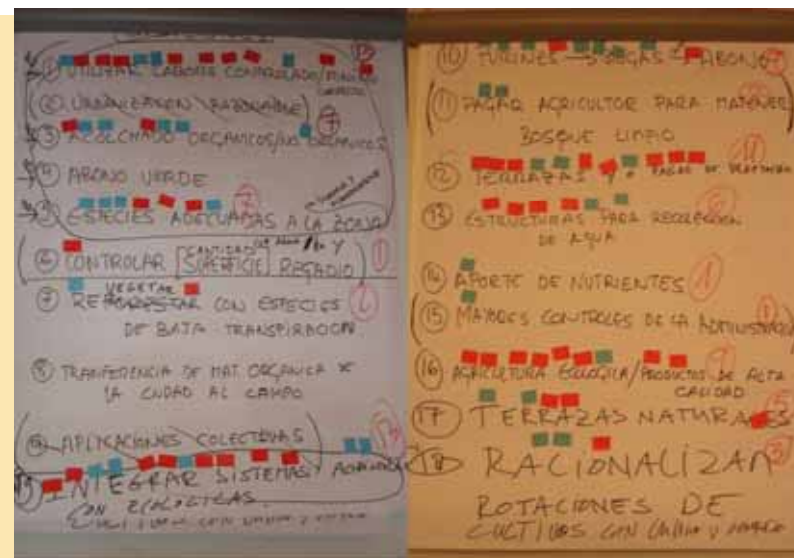 ① UTILIZAR LABOREO CONTROLADO/MINIMO
② URBANIZACION RAZONABLE)
③ ACOLCHADO ORGANICOS/NO ORGANICOS
④ ABONO VERDE
ESPECIES ADECUADAS A LA ZONA
(⑥ CONTROLAR CANTIDAD Y
SUPERFICIE REGADIO)
⑦ VEGETAR
REFORESTAR CON ESPECIES
DE BAJA TRANSPIRACION
⑧ TRANFERENCIA DE MAT. ORGANICA
LA CIUDAD AL CAMPO
⑨ APLICACIONES COLECTIVAS)
INTEGRAR SISTEMAS
CON ECOLOGICAS
⑩ PURINES → BIOGAS → ABONO
(⑪ PAGAR AGRICULTOR PARA MATENER
BOSQUE LIMPIO
⑫ TERRAZAS Y
⑬ ESTRUCTURAS PARA RECOLECCION
DE AGUA
⑭ APORTE DE NUTRIENTES
(⑮ MAYORES CONTROLES DE LA ADMINISTRACION
⑯ AGRICULTURA ECOLOGICA/PRODUCTOS DE ALTA
CALIDAD
⑰ TERRAZAS NATURALES
⑱ RACIONALIZAR
ROTACIONES DE
CULTIVOS CON